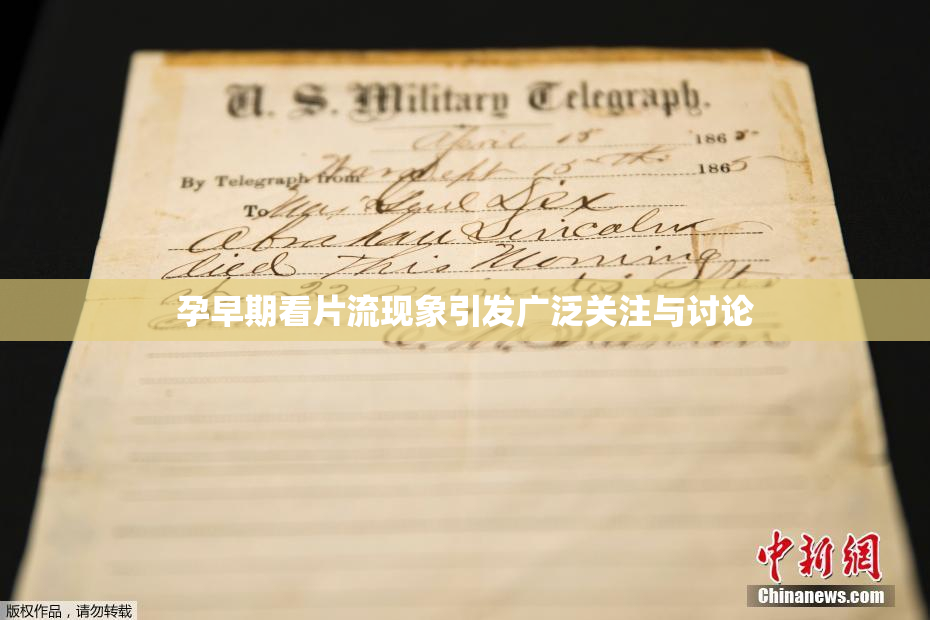 U. S. Military Telegraph.
April 15 1865
By Telegraph from War Dept 15th 1865
To Maj Genl Dix
Abraham Lincoln
died This Morning
at 22 minutes after
孕早期看片流现象引发广泛关注与讨论
中新网
Chinanews.com
版权作品，请勿转载